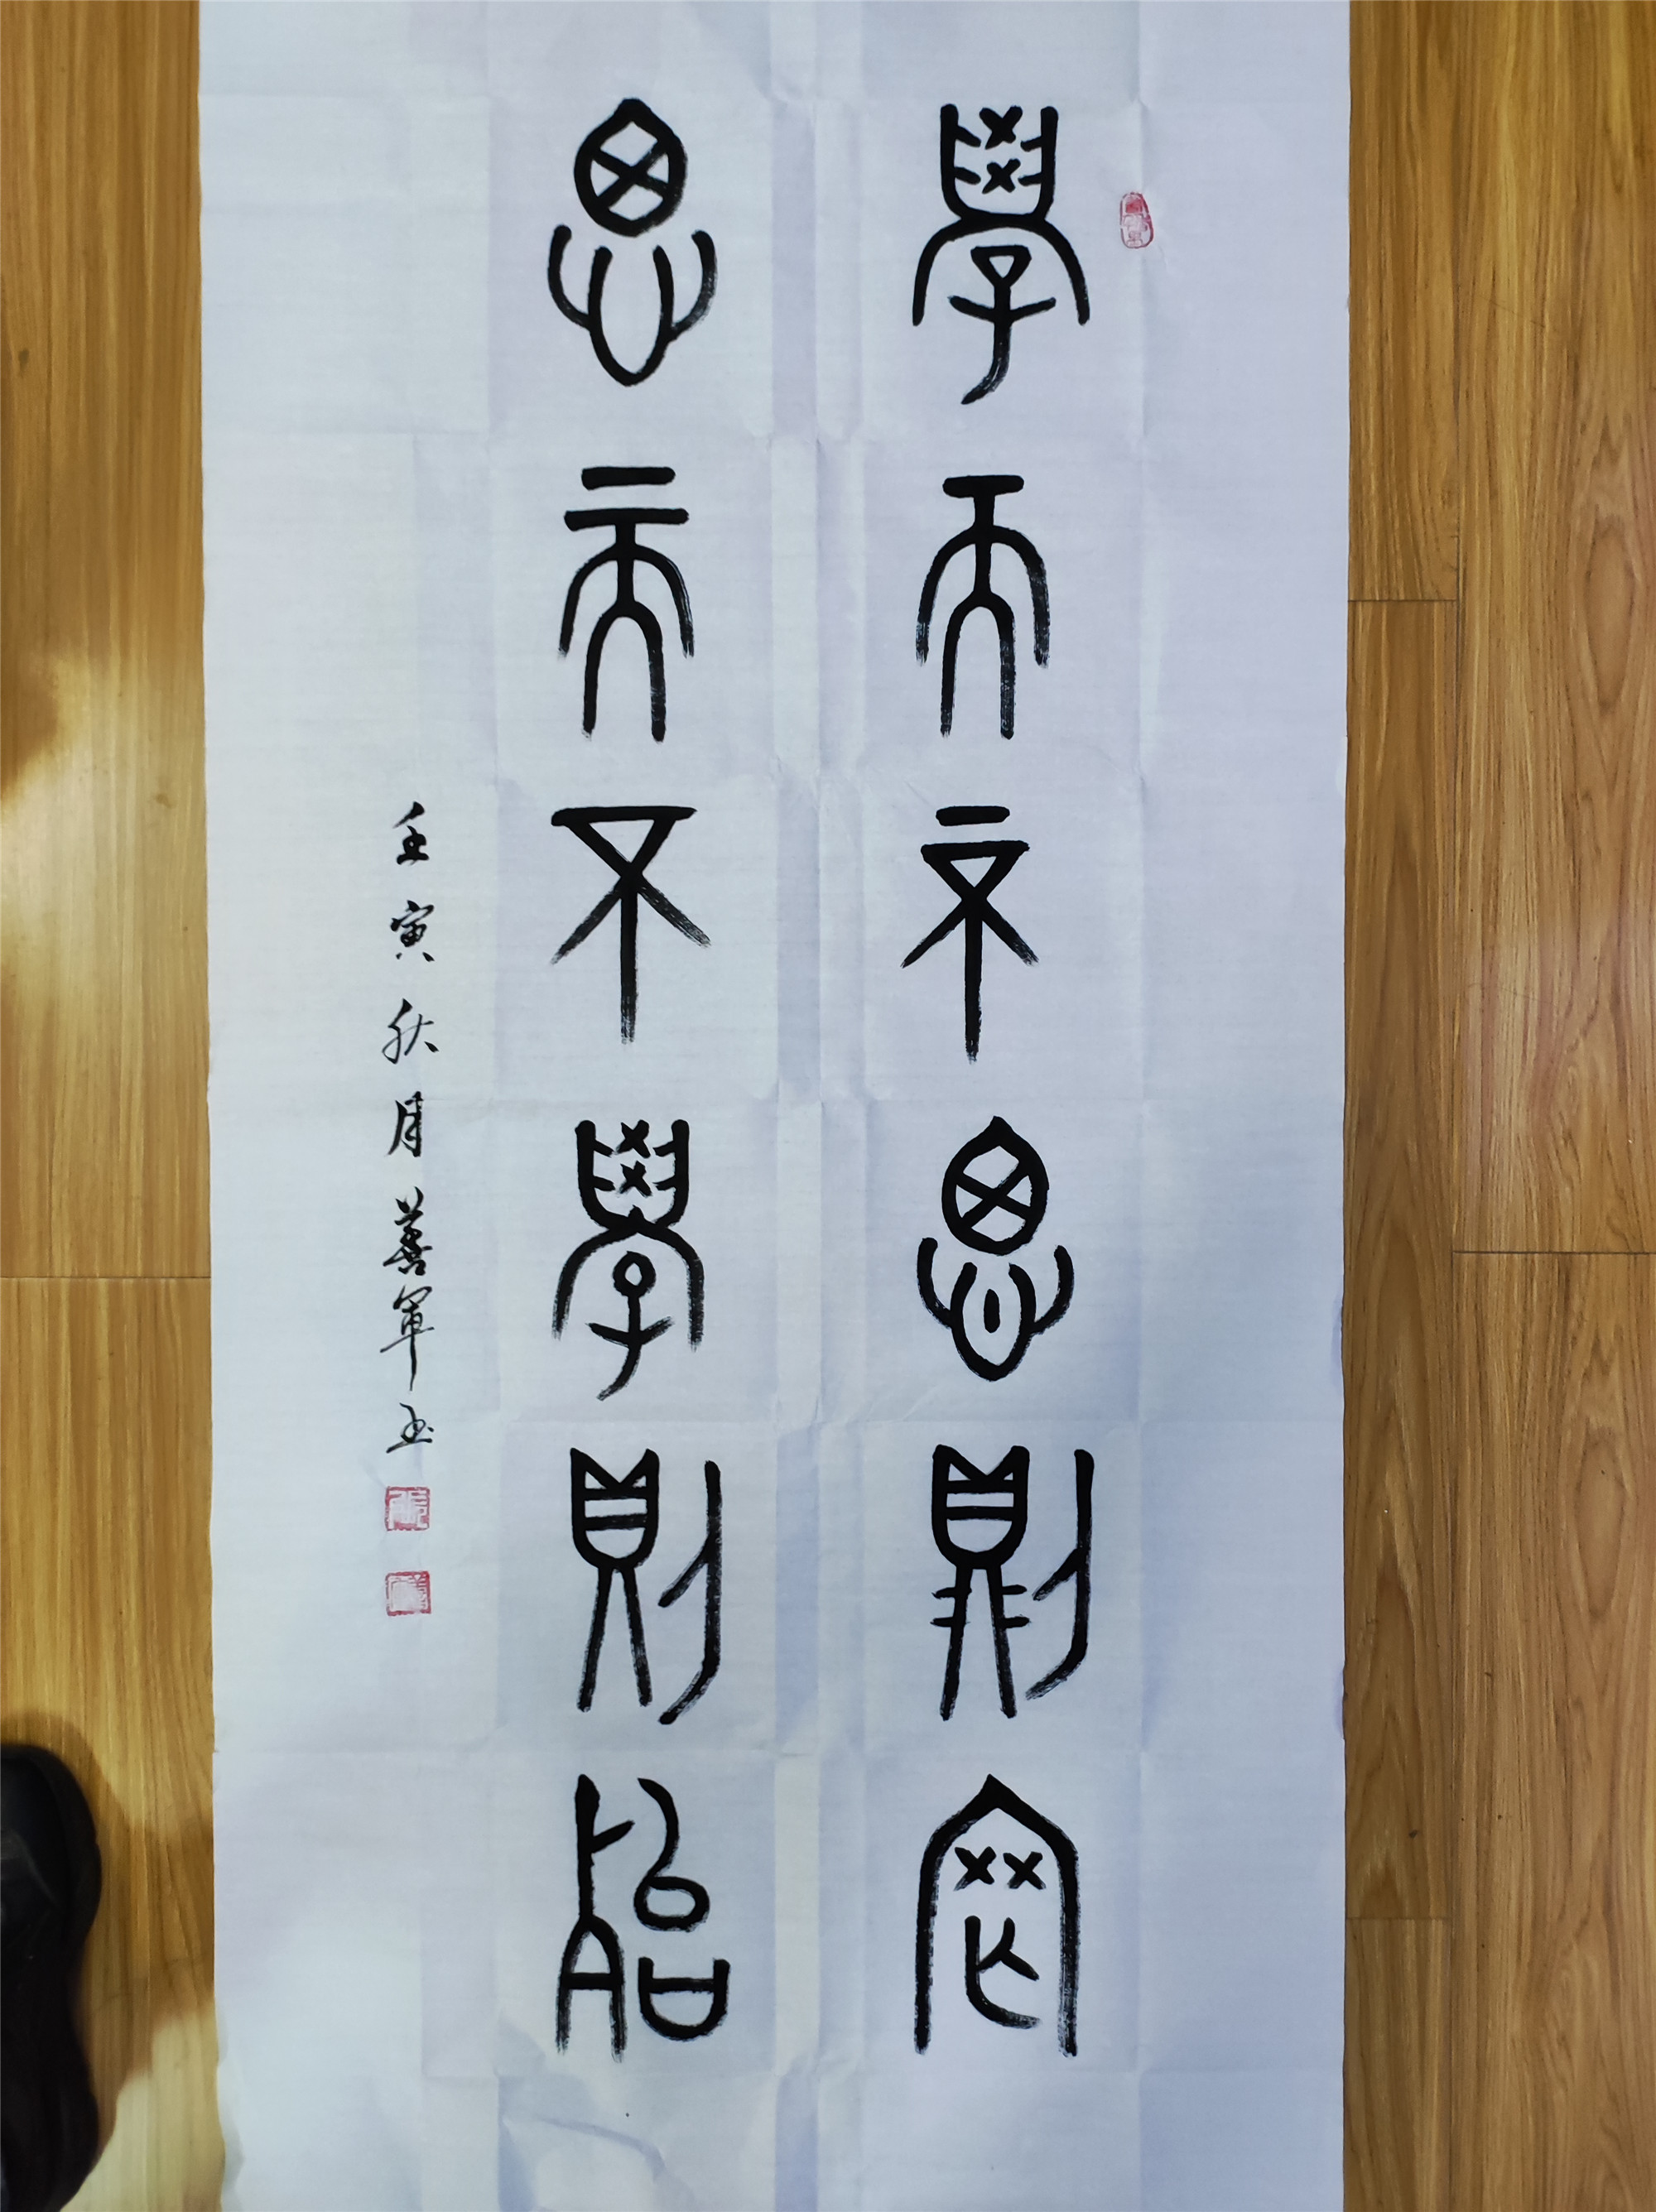 學而不思則罔
思而不學則殆
壬寅秋月善軍書